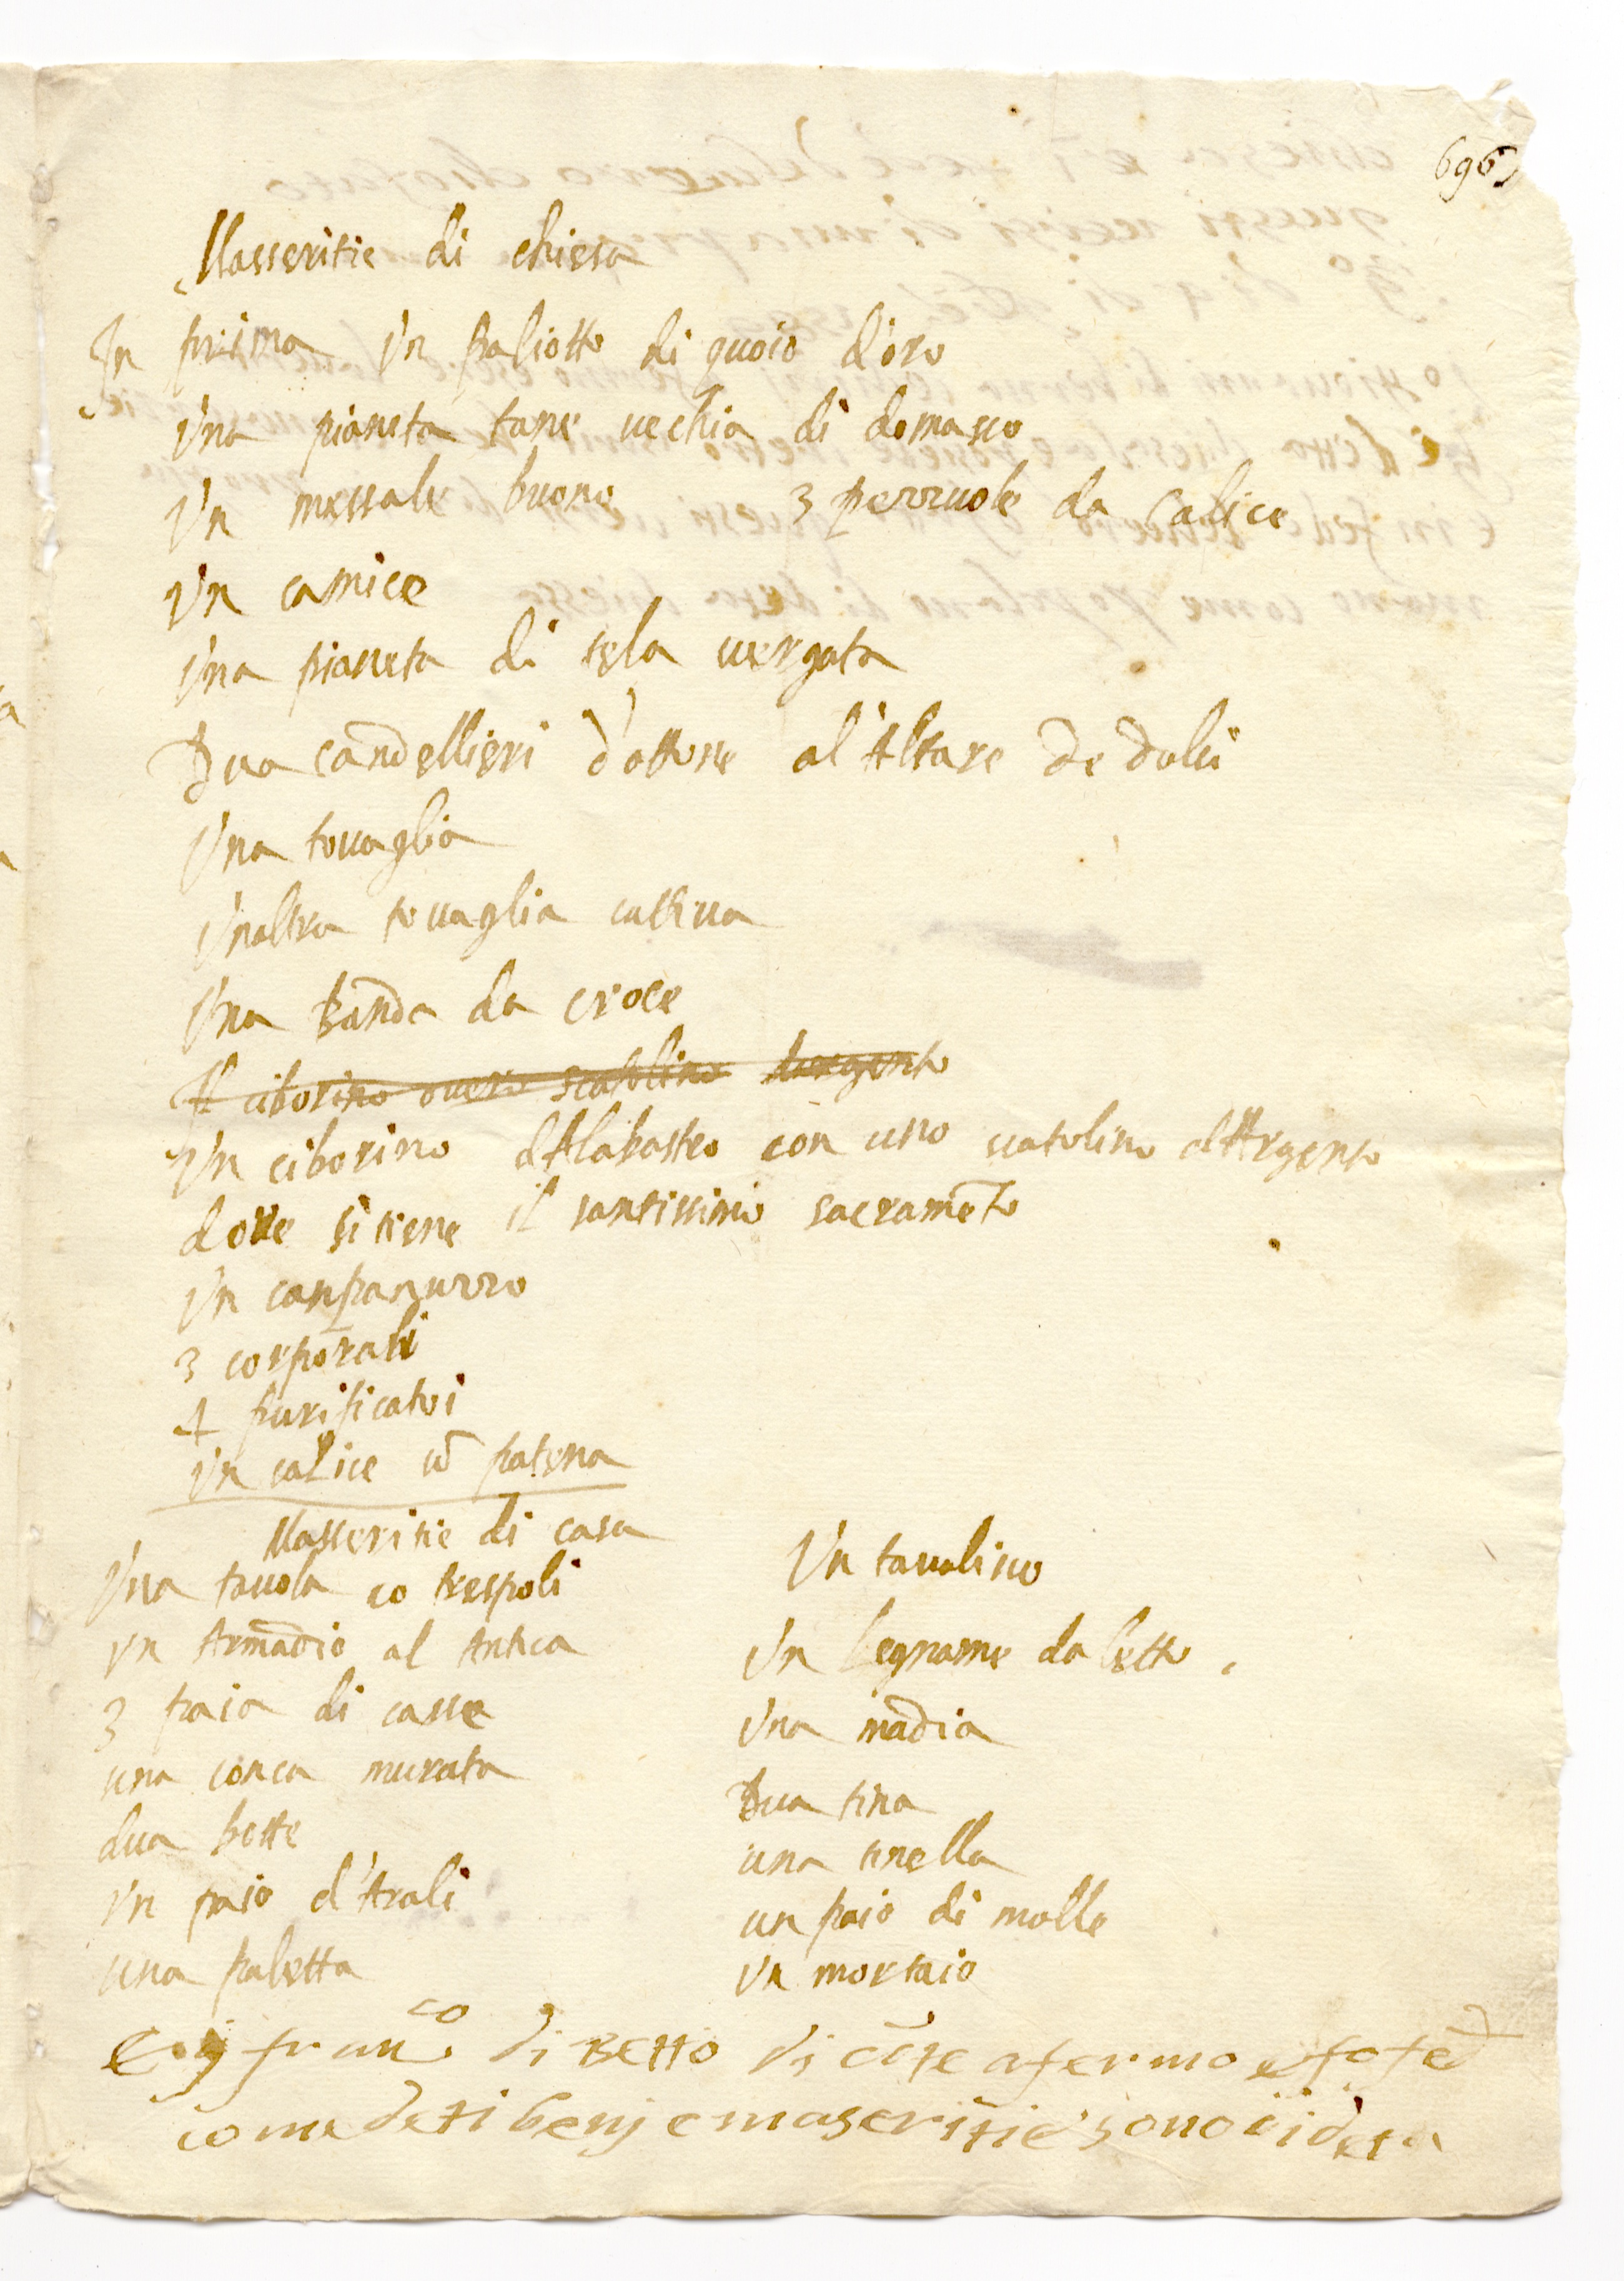 696
Masseritie di chiesa
In prima Vn paliotto di quoio d'oro
Vna pianeta tane uechia di domasco
Vn messale buono 3 pezzuole da calice
Vn camice
Vna pianeta di tela uergata
Dua candellieri d'ottone al'Altare de dolci
Vna touaglia
Vnaltra touaglia cattiua
Vna Banda da croce
Il ciborino ouero scatolino dargento
Vn ciborino d'Alabastro con uno scatolino d'Argento
doue si tiene il santissimo sacrameto
Vn canpanuzzo
3 corporali
4 purificatoi
Vn calice cō patena
Masseritie di casa
Vna tauola co trespoli
Vn Armadio al Antica
3 paia di casse
una conca murata
dua botte
Vn paio d'Arali
una paletta
Vn tauolino
Vn Legname da letto
Vna madia
Dua tina
una tinella
un paio di molle
Vn mortaio
franco di Betto di afermo e fo fed
come deti benj e maseritie sono i deta